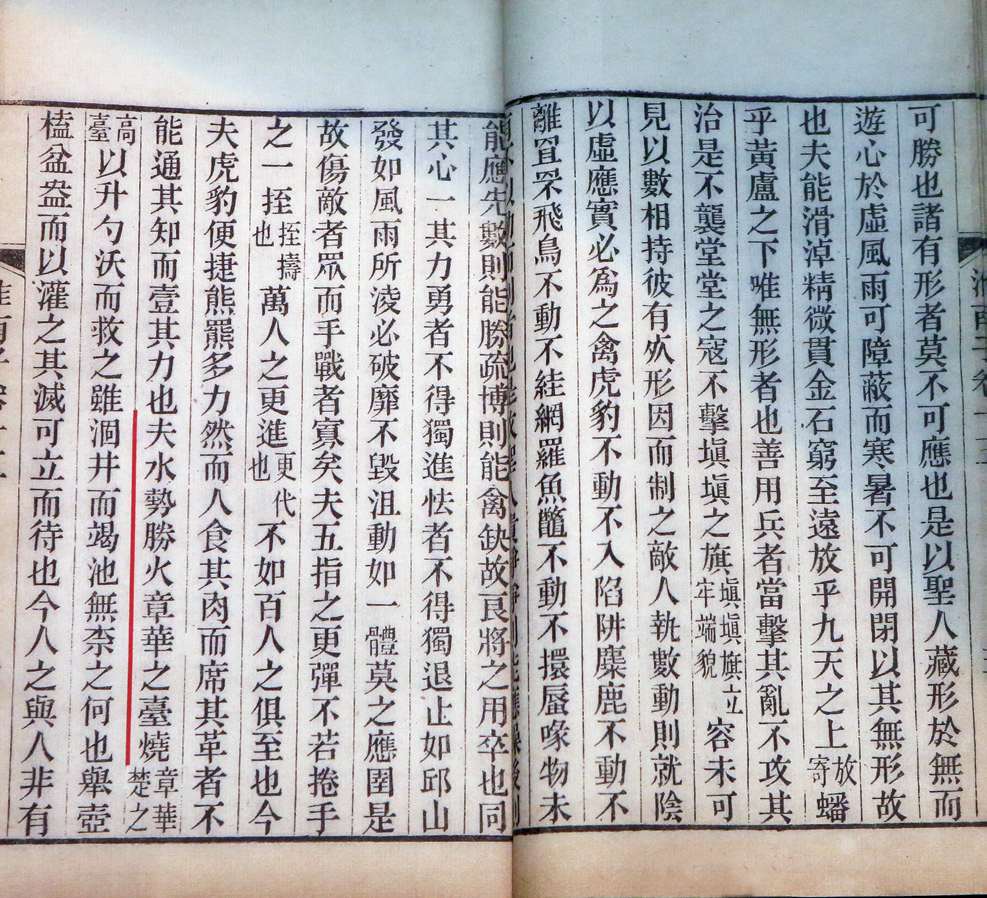 可勝也諸有形者莫不可應也是以聖人藏形於無而
遊心於虛風雨可障蔽而寒暑不可開閉以其無形故
也夫能滑淖精微貫金石窮至遠放乎九天之上放寄蟠
乎黃盧之下唯無形者也善用兵者當擊其亂不攻其
治是不襲堂堂之寇不擊塡塡之旗塡塡旗立牢端貌容未可
見以數相持彼有死形因而制之敵人執數動則就陰
以虛應實必爲之禽虎豹不動不入陷阱麋鹿不動不
離罝罘飛鳥不動不絓網羅魚鼈不動不擐脣喙物未
能應先數則能勝疏博則能禽缺故良將之用卒也同
其心一其力勇者不得獨進怯者不得獨退止如邱山
發如風雨所淩必破靡不毀沮動如一體莫之應圉是
故傷敵者眾而手戰者寡矣夫五指之更彈不若捲手
之一挃挃擣也萬人之更進更代也不如百人之俱至也今
夫虎豹便捷熊羆多力然而人食其肉而席其革者不
能通其知而壹其力也夫水勢勝火章華之臺燒章華楚之
高臺以升勺沃而救之雖涸井而竭池無柰之何也舉壺
榼盆盎而以灌之其滅可立而待也今人之與人非有